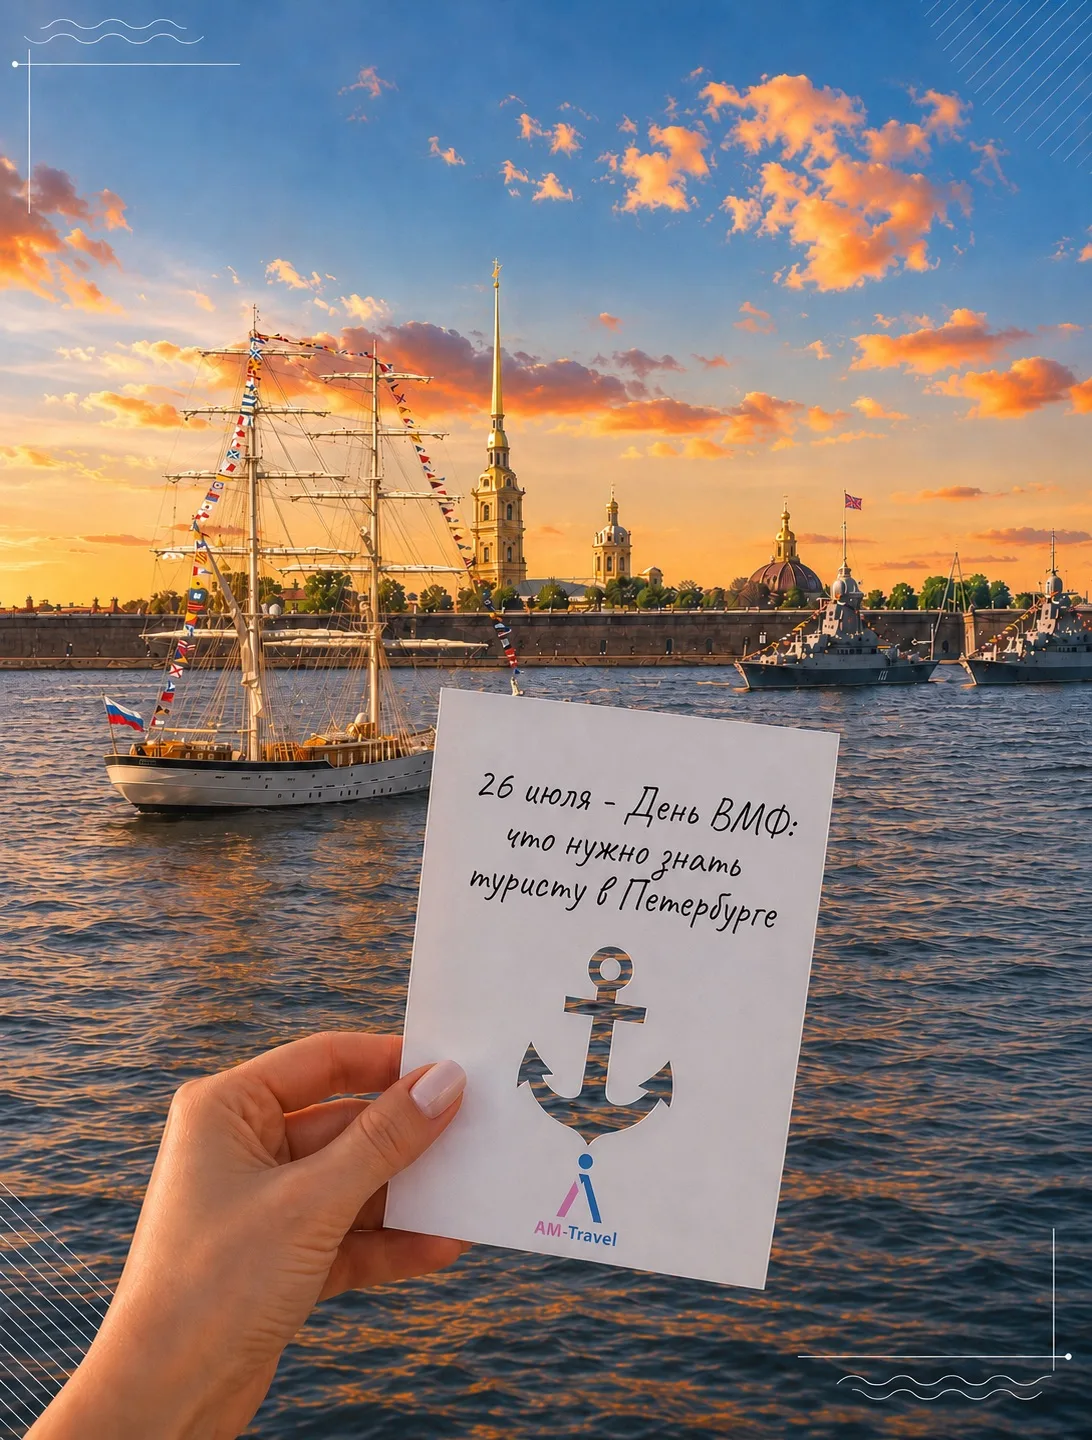 26 июля - День ВМФ:
что нужно знать
туристу в Петербурге
AM-Travel